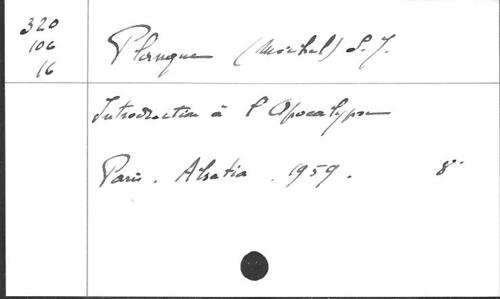 320
106
16
Planque (Michel) S.J.
Introduction à l'Apocalypse
Paris. Alsatia. 1959. 8°